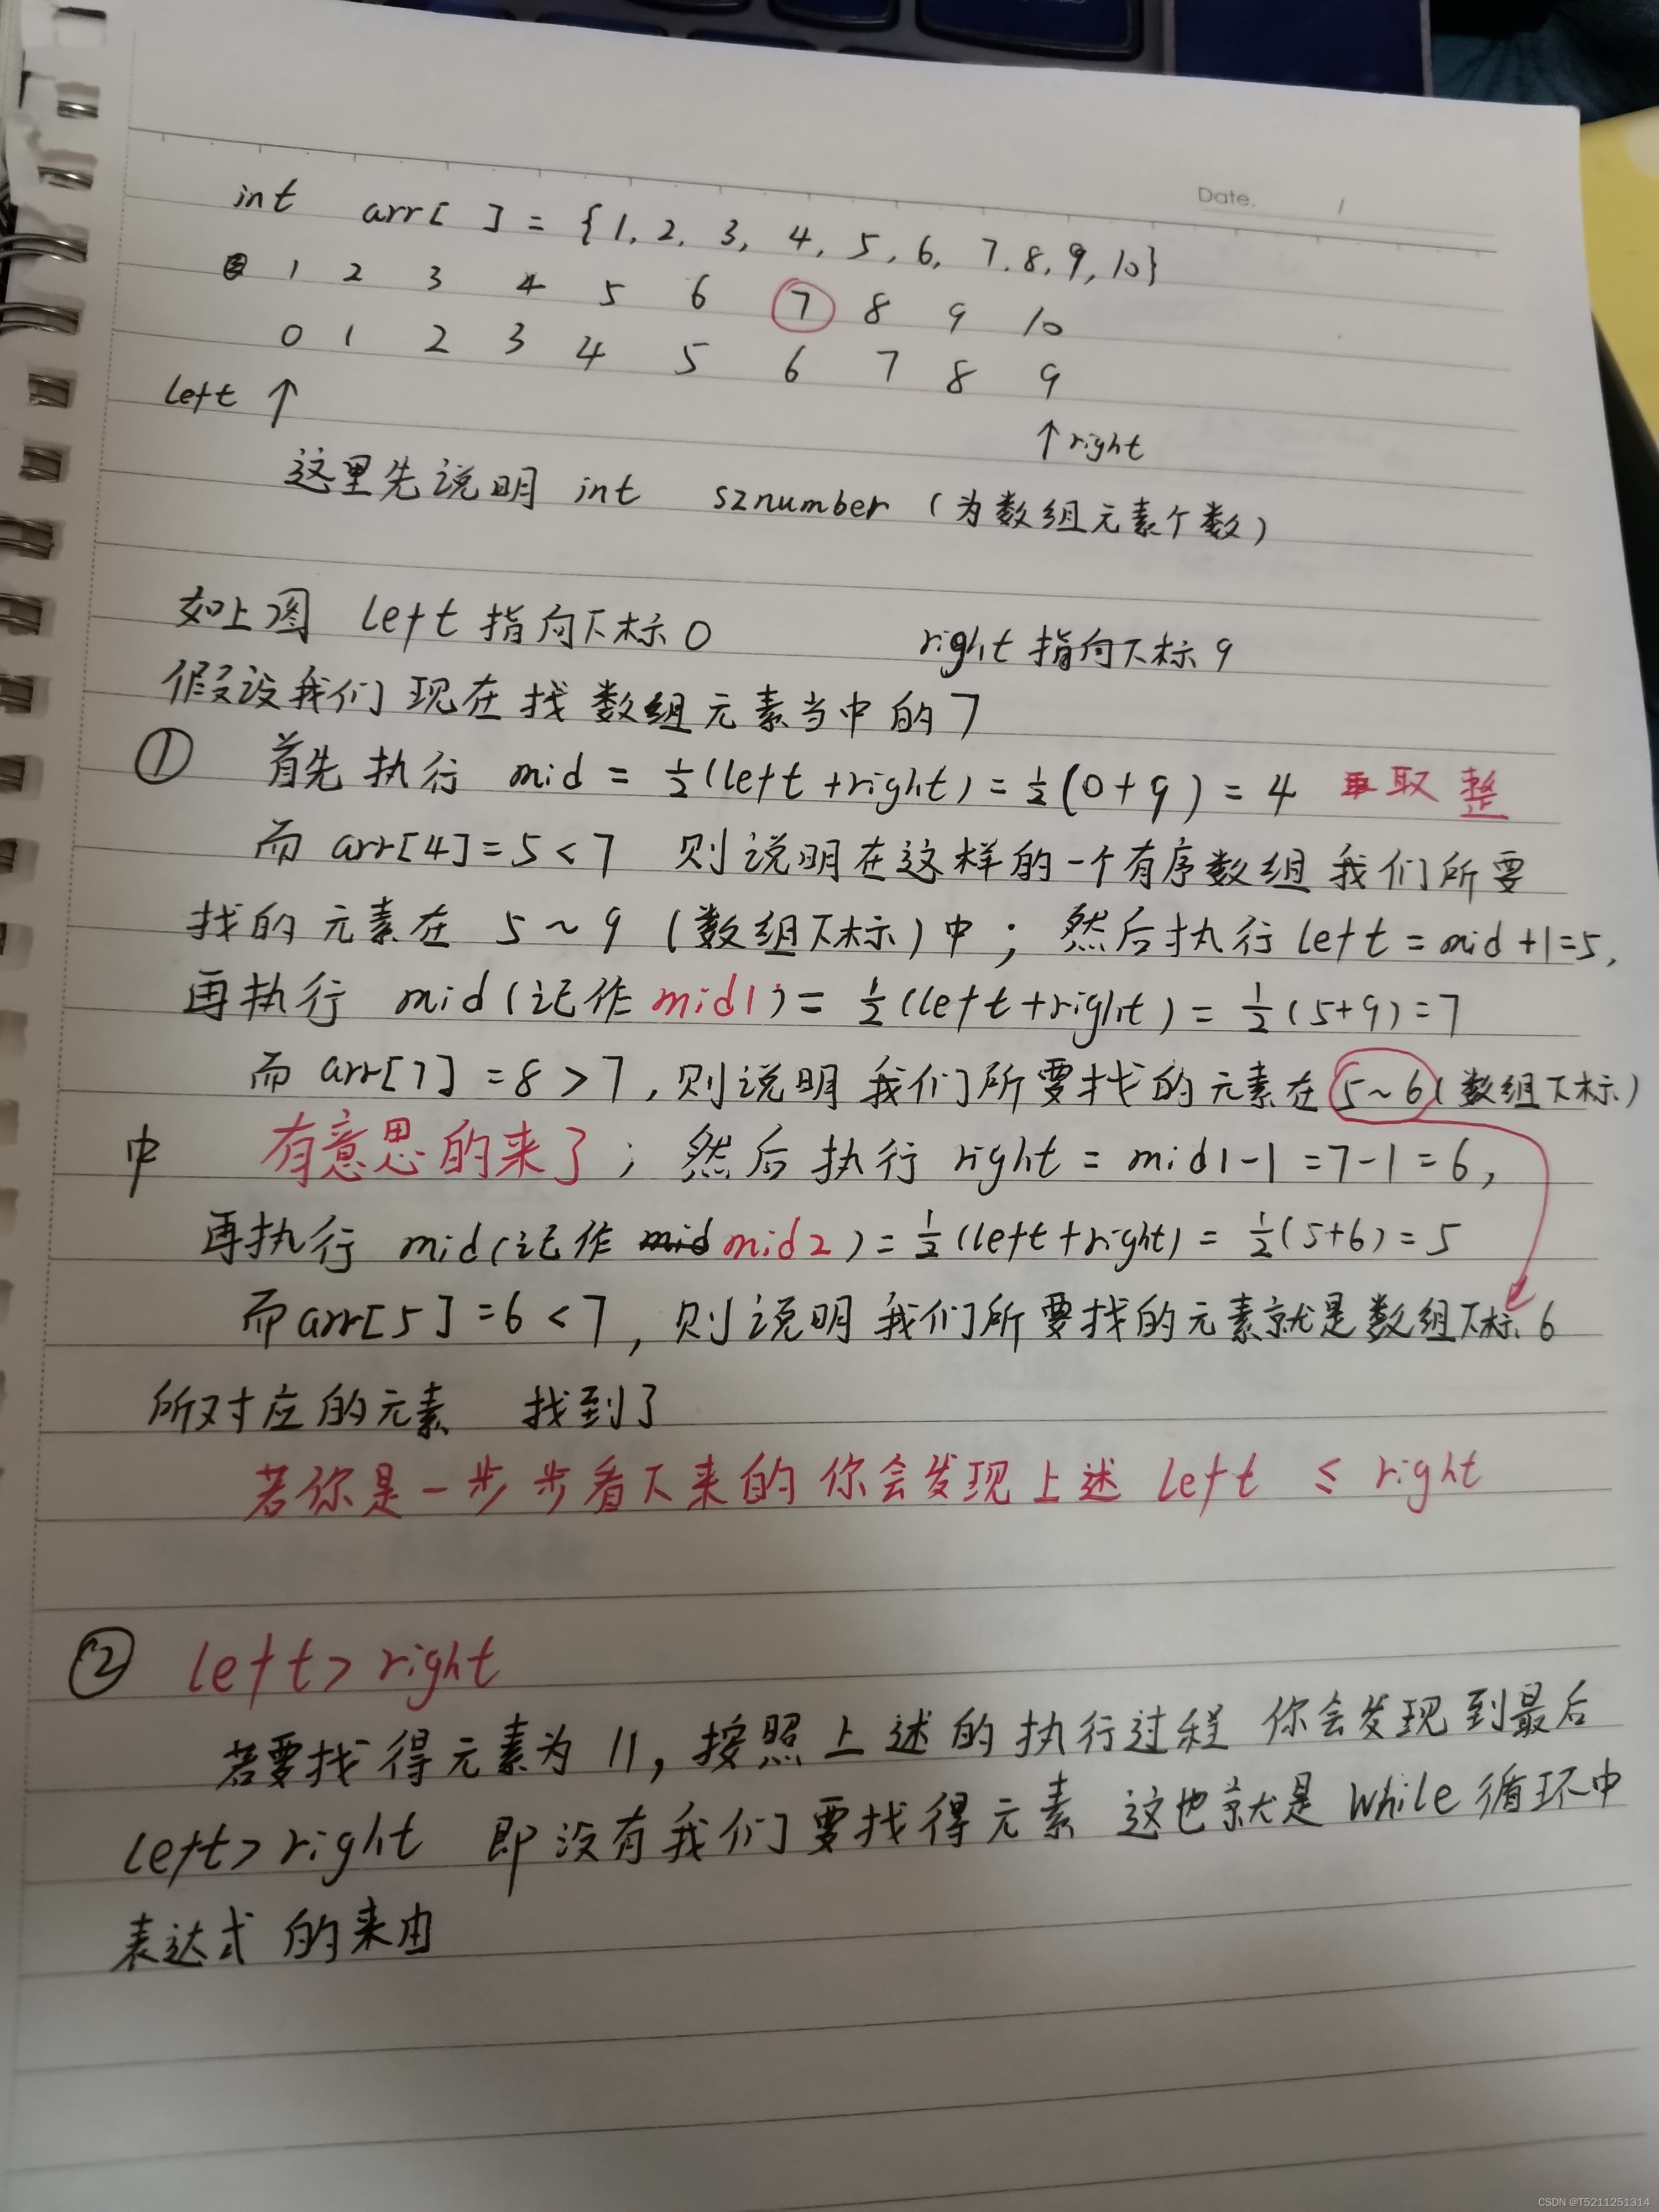 Date. /
int arr[ ] = {1, 2, 3, 4, 5, 6, 7, 8, 9, 10}
1 2 3 4 5 6 7 8 9 10
0 1 2 3 4 5 6 7 8 9
left ↑
↑ right
这里先说明 int sznumber (为数组元素个数)
如上图 left 指向下标 0 right 指向下标 9
假设我们现在找数组元素当中的 7
① 首先执行 mid = ½(left + right) = ½(0+9) = 4 取整
而 arr[4] = 5 < 7 则说明在这样的一个有序数组我们所要
找的元素在 5~9 (数组下标) 中; 然后执行 left = mid +1=5,
再执行 mid (记作 mid1) = ½(left + right) = ½(5+9) = 7
而 arr[7] = 8 > 7, 则说明我们所要找的元素在 5~6 (数组下标)
中 有意思的来了; 然后执行 right = mid1-1 = 7-1 = 6,
再执行 mid (记作 mid mid2) = ½(left + right) = ½(5+6) = 5
而 arr[5] = 6 < 7, 则说明我们所要找的元素就是数组下标 6
所对应的元素 找到了
若你是一步步看下来的 你会发现上述 left ≤ right
② left > right
若要找得元素为 11, 按照上述的执行过程 你会发现到最后
left > right 即没有我们要找得元素 这也就是 While 循环中
表达式的来由
CSDN @T5211251314